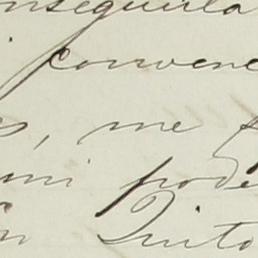 conseguirla
convenc
s, me
mi pode
Quito